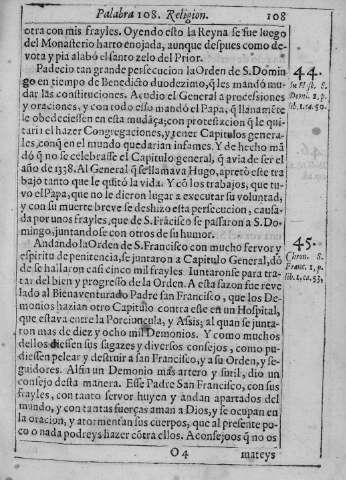 Palabra 108. Religion. 108
otra con mis frayles. Oyendo esto la Reyna se fue luego
del Monasterio harto enojada, aunque despues como de-
vota y pia alabò el santo zelo del Prior.
Padecio tan grande persecucion la Orden de S. Domin
go en tiempo de Benedicto duodezimo, q̃ les mandò mu-
dar las constituciones. Acudio el General a processiones
y oraciones, y con todo esso mandò el Papa, q̃ llanamẽte
le obedeciessen en esta mudãça; con protestacion q̃ le qui-
tari el hazer Congregaciones, y tener Capitulos genera-
les, con q̃ en el mundo quedarian infames. Y de hecho mã
dò q̃ no se celebrasse el Capitulo general, q̃ avia de ser el
año de 1338. Al General q̃ se llamava Hugo, apretò este tra
bajo tanto que le quitò la vida. Y cõ los trabajos, que tu-
vo el Papa, que no le dieron lugar a executar su voluntad,
y con su muerte breve se deshizo esta persecucion, causa-
da por unos frayles, que de S. Frãcisco se passaron a S. Do-
mingo, juntandose con otros de su humor.
Andando la Orden de S. Francisco con mucho fervor y
espiritu de penitencia, se juntaron a Capitulo General, dõ
de se hallaron casi cinco mil frayles. Iuntaronse para tra-
tar del bien y progresso de la Orden. A esta sazon fue reve
lado al Bienaventurado Padre san Francisco, que los De-
monios hazian otro Capitulo contra esse en un Hospital,
que estava entre la Porciuncula, y Assis; al qual se junta-
ron mas de diez y ocho mil Demonios. Y como muchos
dellos diessen sus sagazes y diversos consejos, como pu-
diessen pelear y destruir a san Francisco, y a su Orden, y se-
guidores. Alfin un Demonio mas artero y sutil, dio un
consejo desta manera. Esse Padre San Francisco, con sus
frayles, con tanto fervor huyen y andan apartados del
mundo, y con tantas fuerças aman a Dios, y se ocupan en
la oracion, y atormentan sus cuerpos, que al presente po-
co o nada podreys hazer cõtra ellos. Aconsejoos q̃ no os
O 4 mateys
44.
Domi. 2. p.
lib. 1. ca. 50.
45.
Chron. S.
Franc. 1. p.
lib. 1. ca. 53.